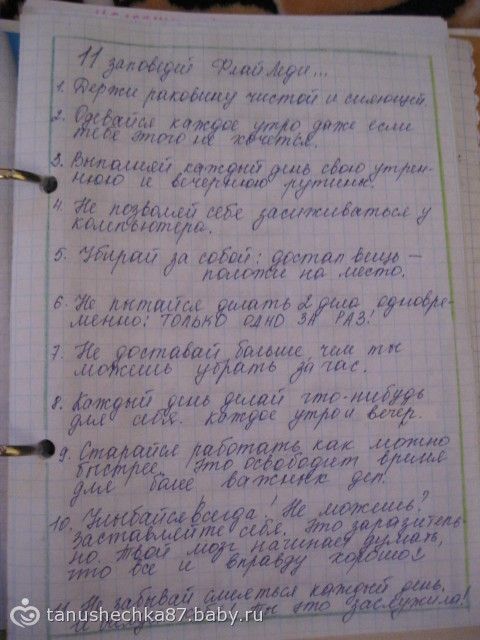 11 заповедей ФлайЛеди...
1. Держи раковину чистой и сияющей.
2. Одевайся каждое утро даже если
тебе этого не хочется.
3. Выполняй каждый день свою утрен-
нюю и вечернюю рутины.
4. Не позволяй себе засиживаться у
компьютера.
5. Убирай за собой: достал вещь —
положи на место.
6. Не пытайся делать 2 дела одновре-
менно! ТОЛЬКО ОДНО ЗА РАЗ!
7. Не доставай больше, чем ты
можешь убрать за час.
8. Каждый день делай что-нибудь
для себя. каждое утро и вечер.
9. Старайся работать как можно
быстрее. Это освободит время
для более важных дел.
10. Улыбайся всегда! Не можешь?
заставляйте себя. Это заразитель-
но. Твой мозг начинает думать,
что все и вправду хорошо!
забывай смеяться каждый день.
ты это заслужила!
tanushechka87.baby.ru